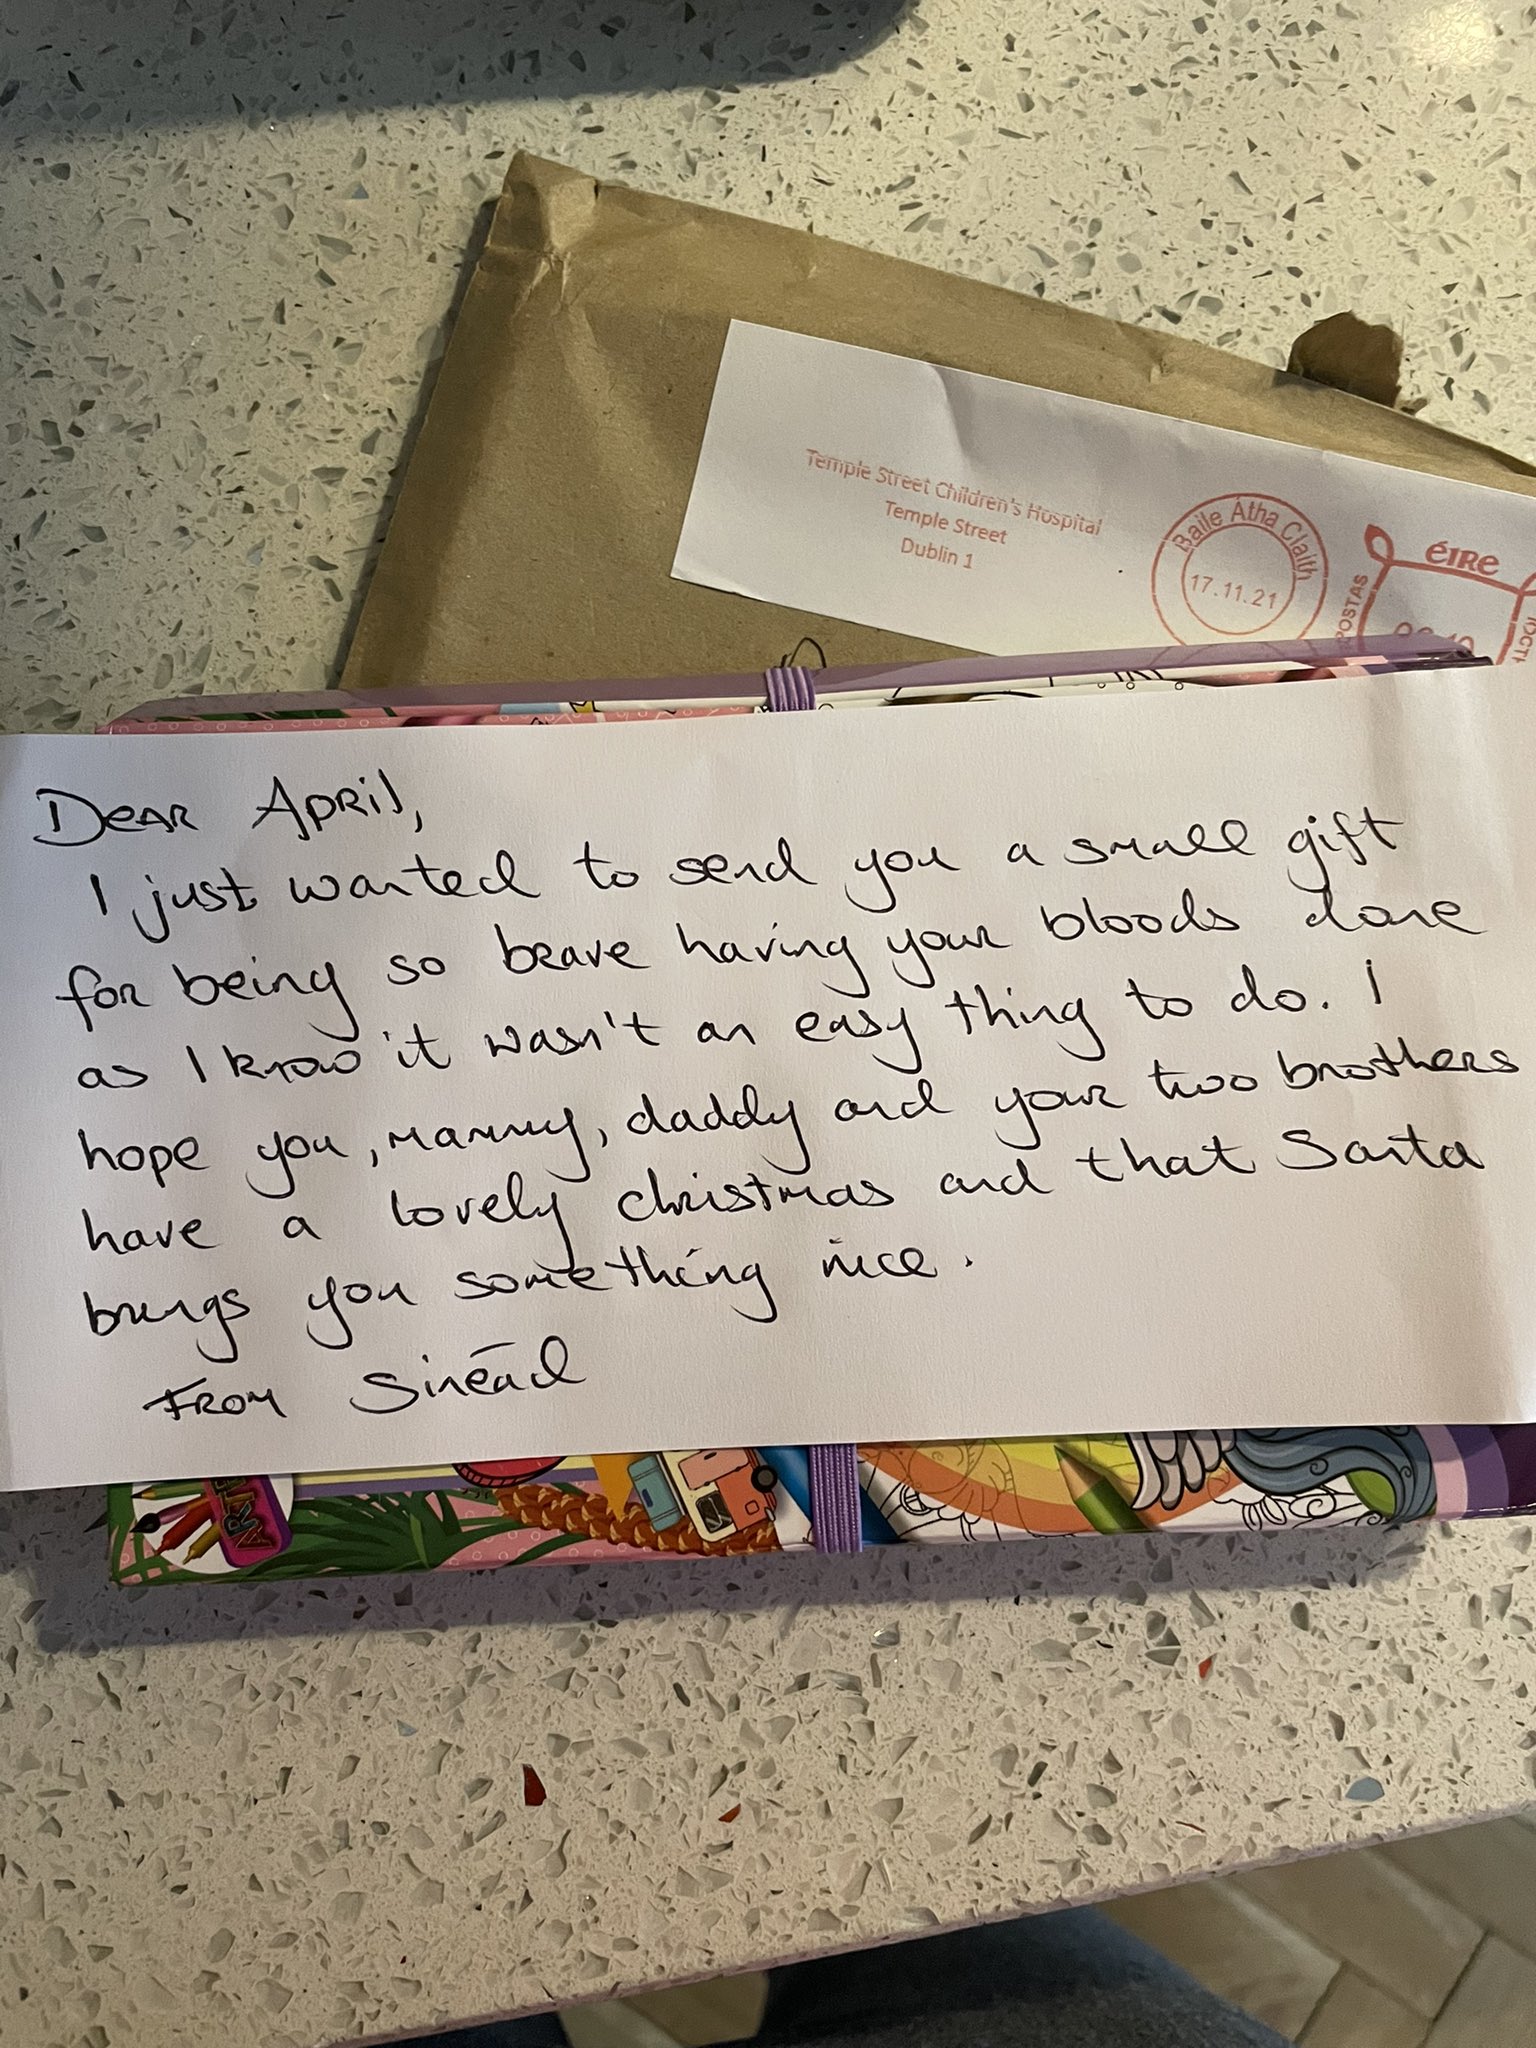 Temple Street Children's Hospital
Temple Street
Dublin 1
Baile Átha Cliath
17.11.21
éire
POSTAS
Dear April,
I just wanted to send you a small gift
for being so brave having your bloods done
as I know it wasn't an easy thing to do. I
hope you, mammy, daddy and your two brothers
have a lovely christmas and that Santa
brings you something nice.
From Sinéad